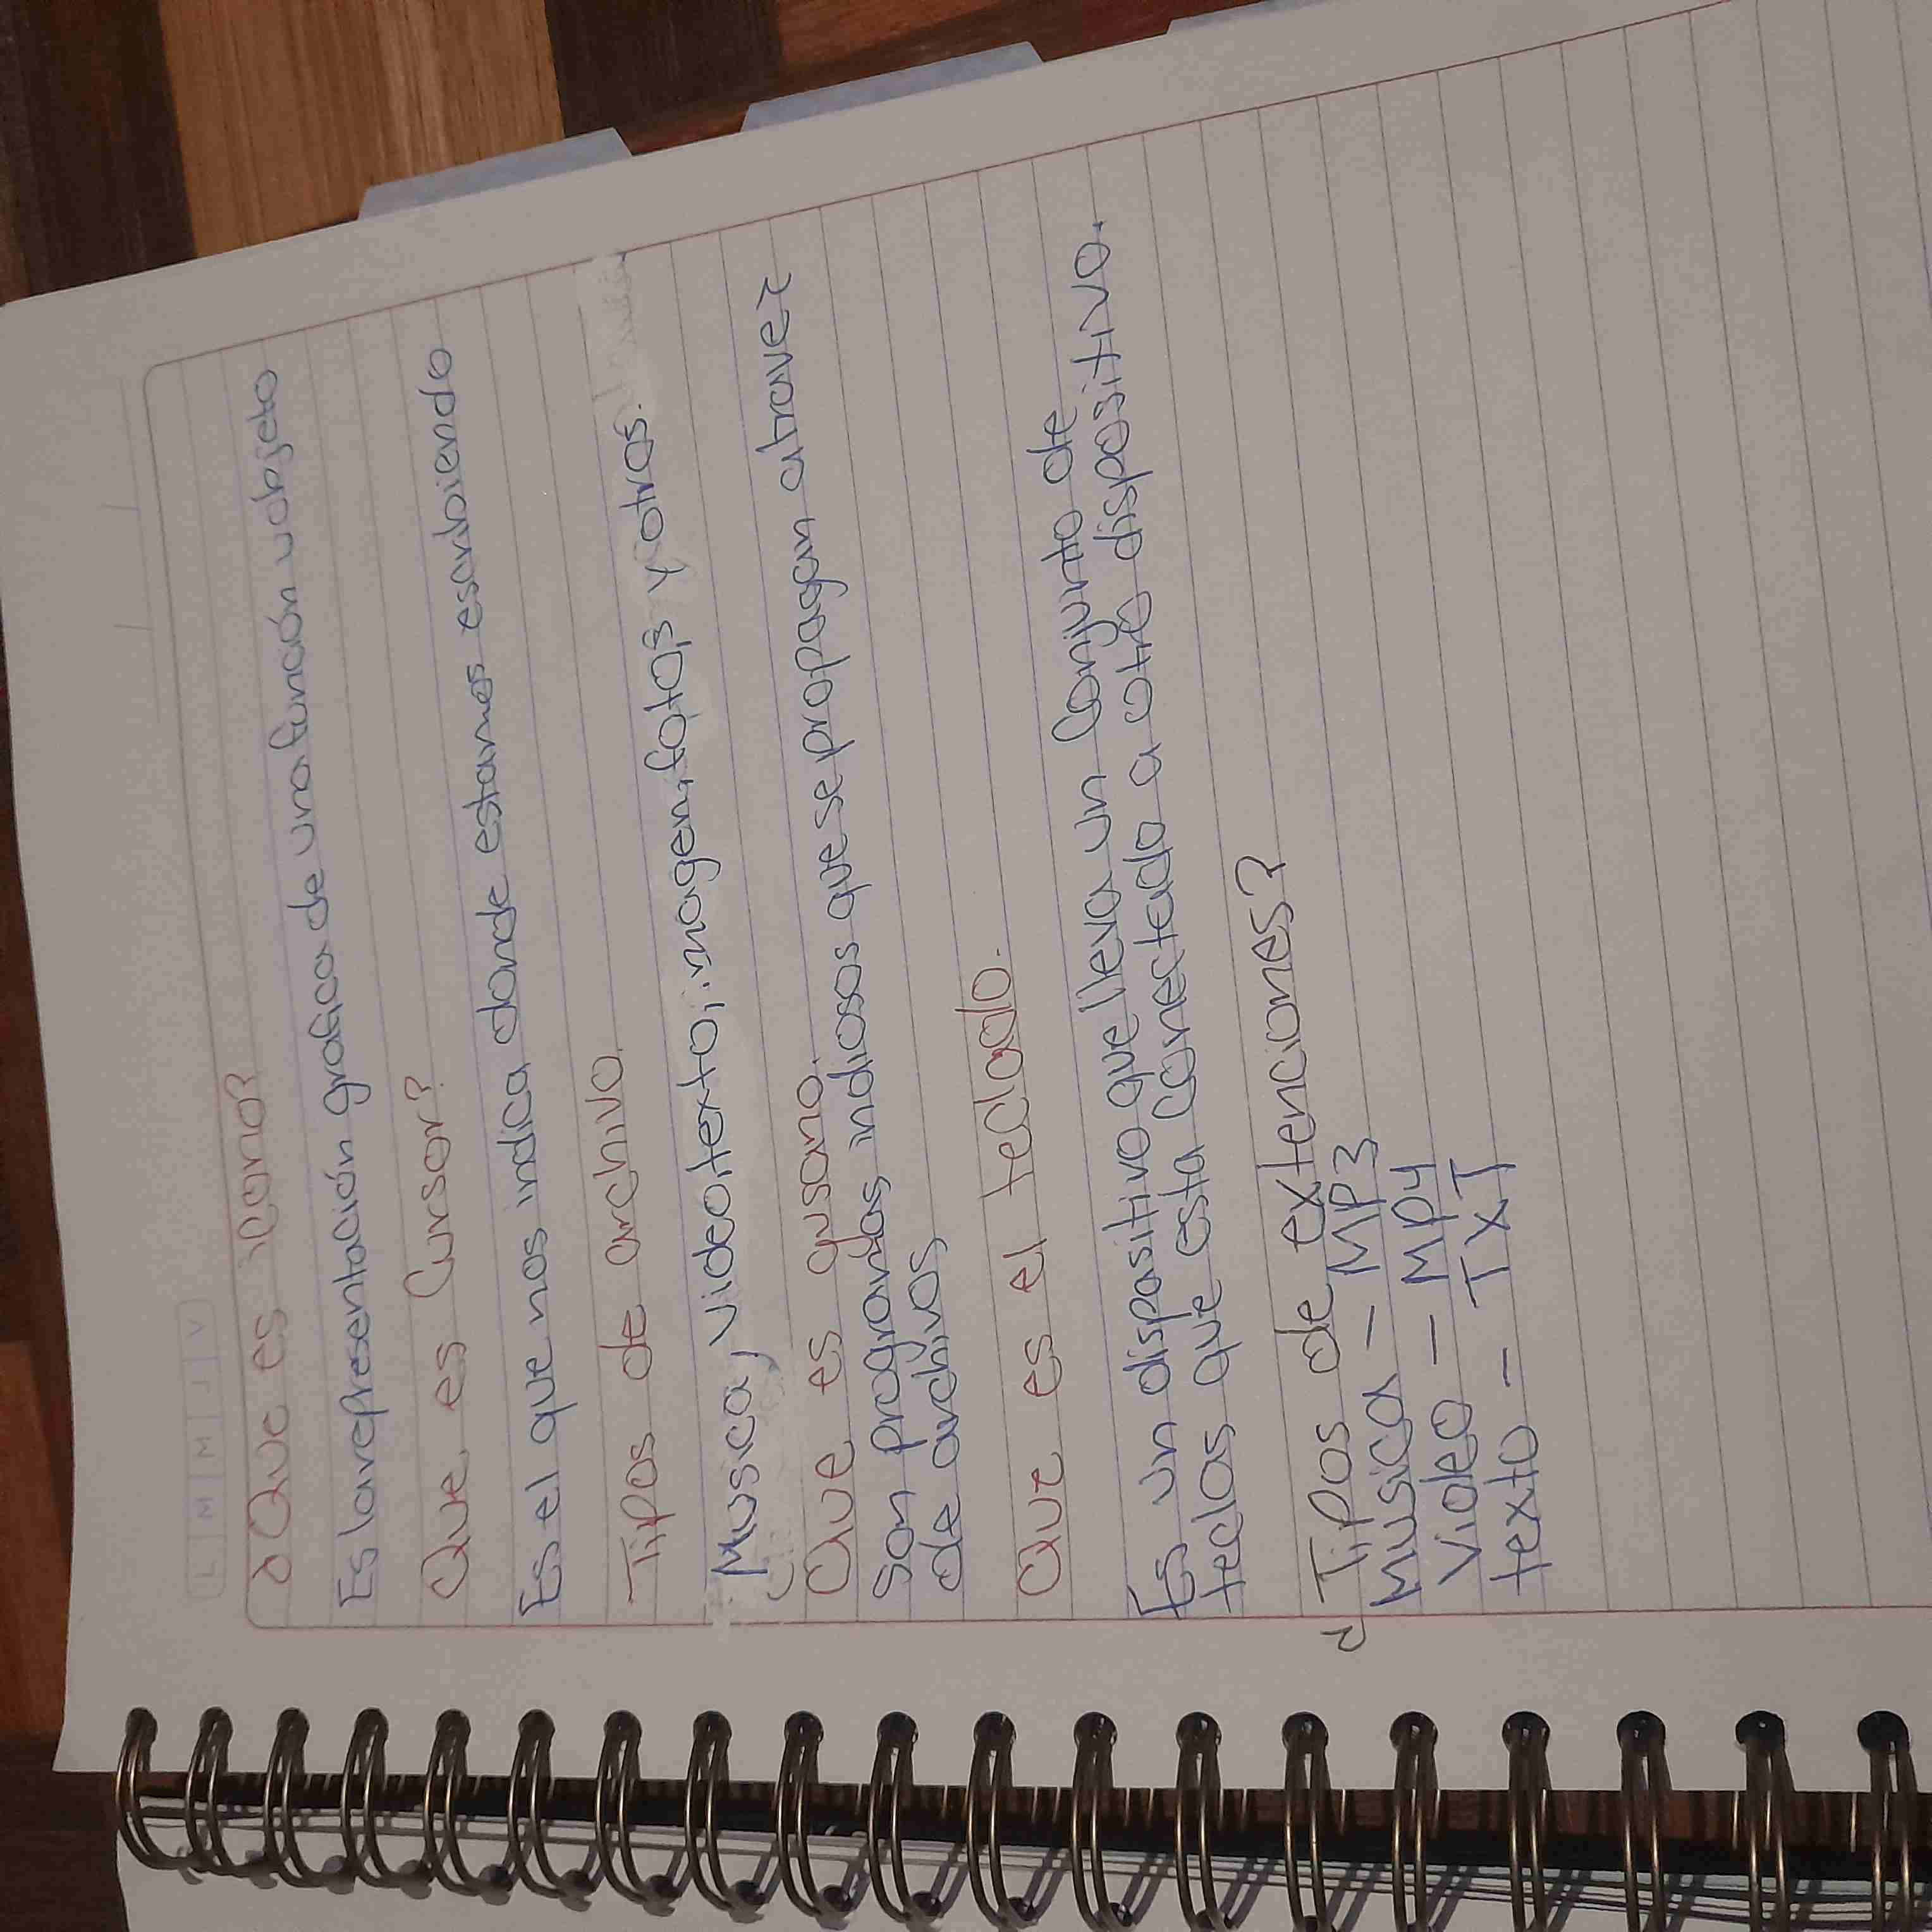 L M M J V
¿Que es icono?
Es la representación grafica de una función u objeto
Que es Cursor?
Es el que nos indica donde estamos escribiendo
Tipos de archivo.
Musica, video, texto, imagen, fotos y otros.
Que es gusano.
Son programas indiosos que se propagan atravez
de archivos
Que es el teclado.
Es un dispositivo que lleva un Conjunto de
teclas que esta Conectado a otro dispositivo.
¿Tipos de extenciones?
Musica - MP3
Video - MP4
texto - TXT